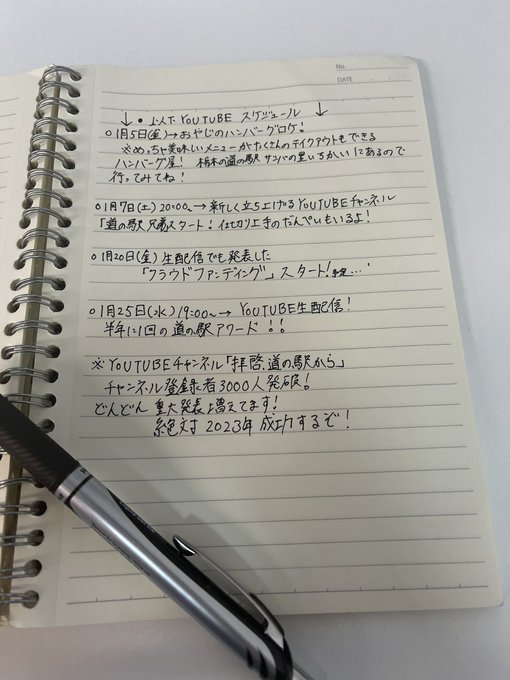 No.
DATE
↓ • 以下 YOUTUBE スケジュール ↓
○1月5日(金)→おやじのハンバーグロケ!
※めっちゃ美味しいメニューがたくさんのテイクアウトもできる
ハンバーグ屋! 栃木の道の駅 サシバの里いちかいにあるので
行ってみてね!
○1月7日(土) 20:00~→新しく立ち上げるYOUTUBEチャンネル
「道の駅兄弟スタート! イセカリ上手のだんぺいもいるよ!
○1月20日(金) 生配信でも発表した
「クラウドファンディング」スタート!予定...
○1月25日(水) 19:00~→YOUTUBE生配信!
半年に1回の道の駅アワード!!
※YOUTUBEチャンネル「拝啓、道の駅から」
チャンネル登録者3000人突破!
どんどん重大発表増えてます!
絶対2023年成功するぞ!